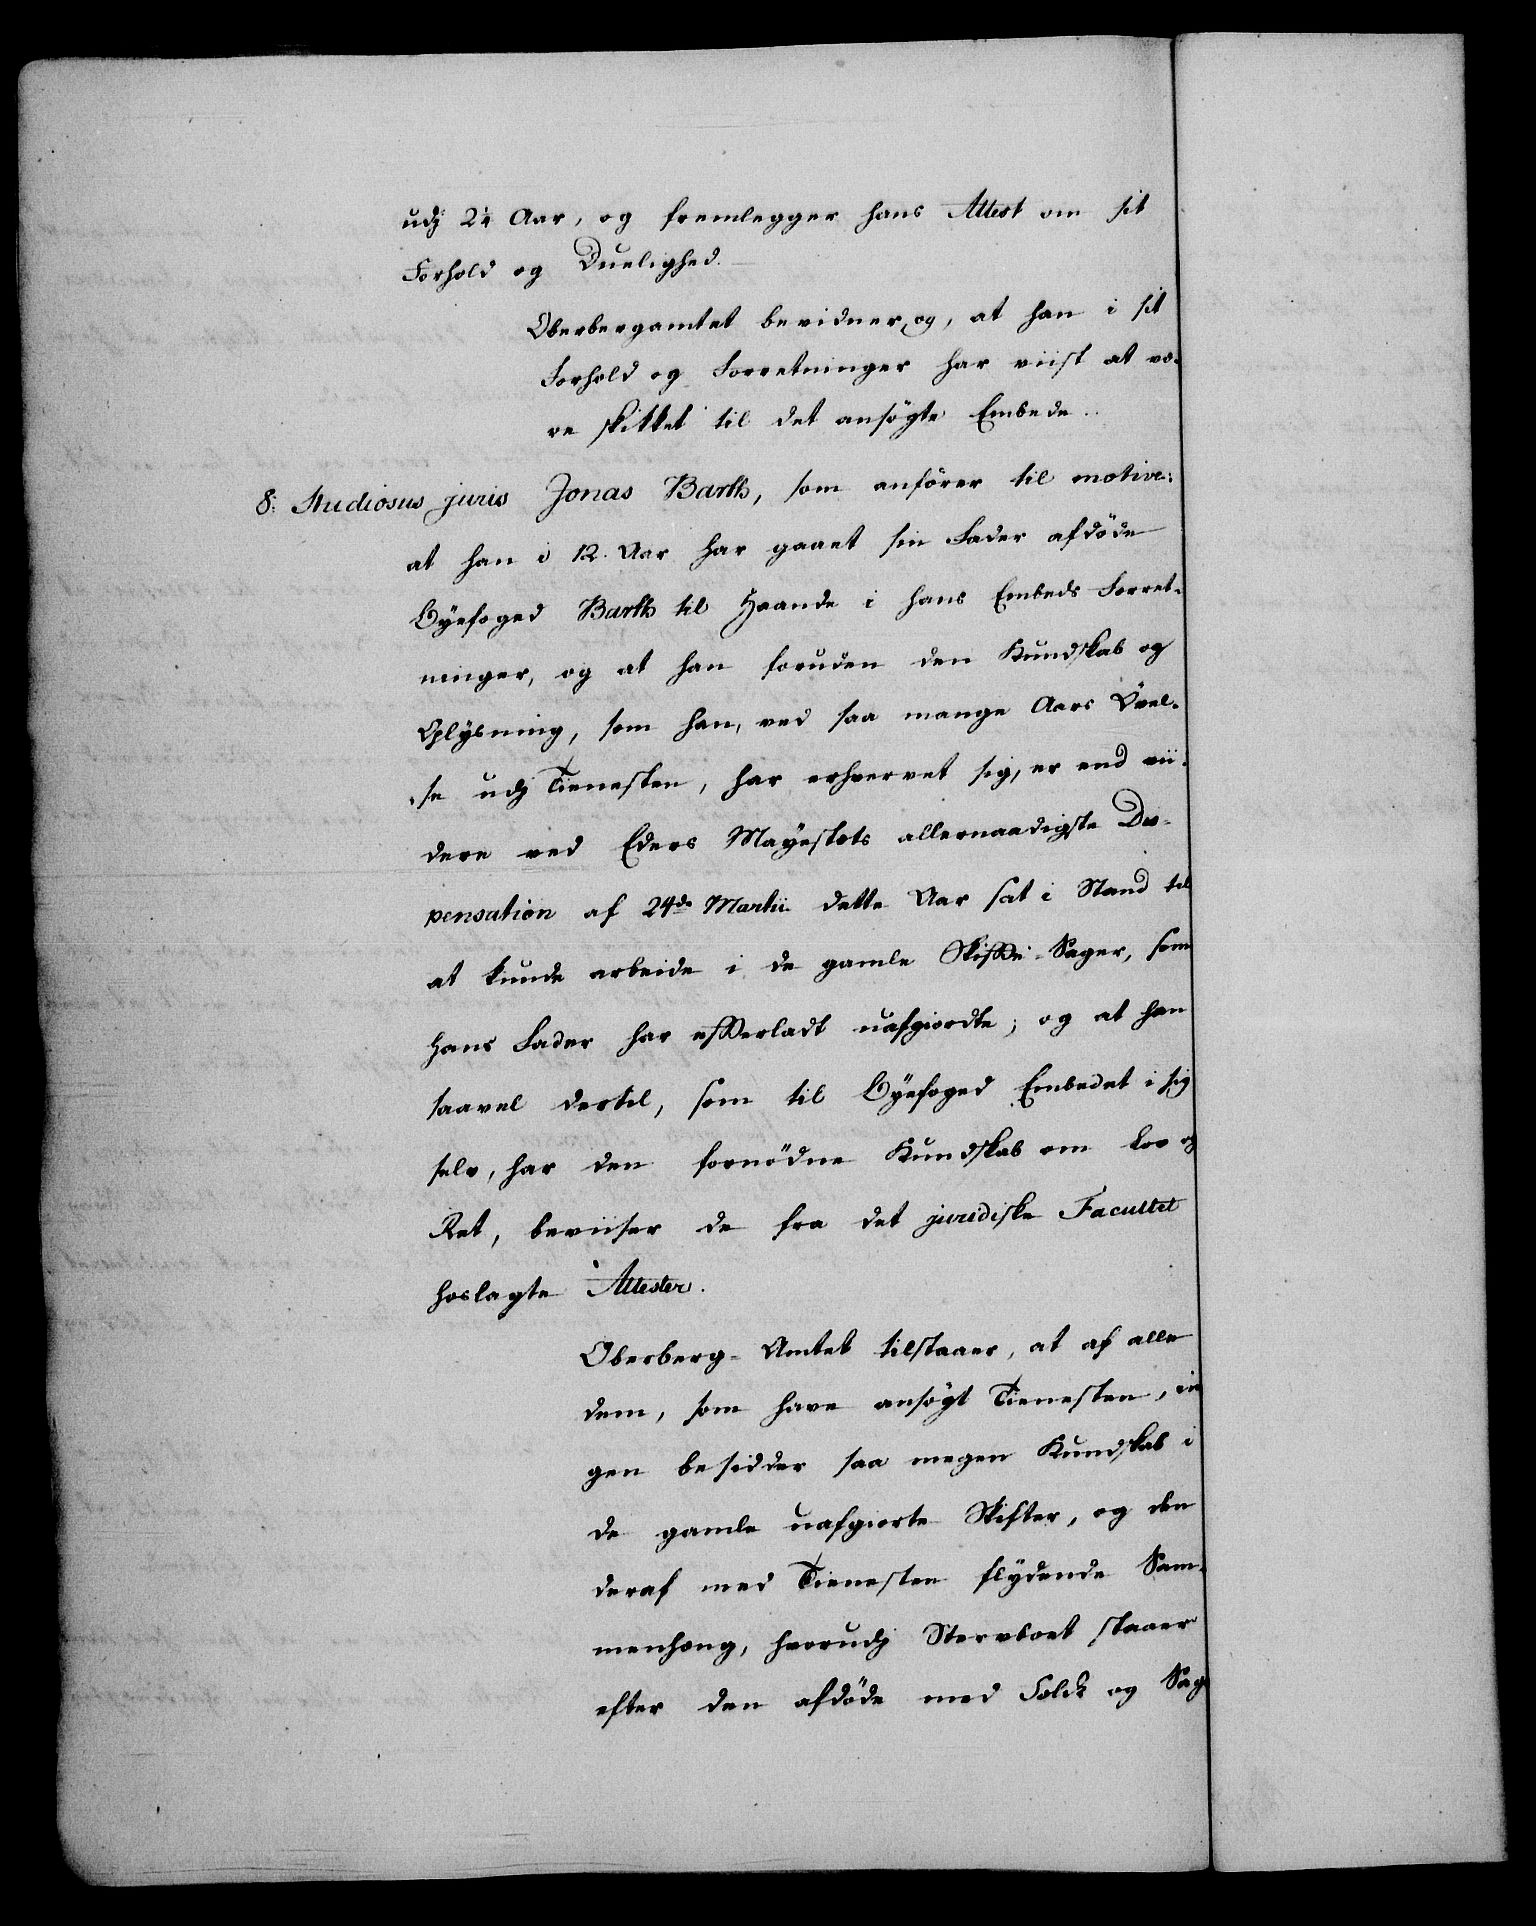 udj 2¼ Aar, og fremlegger hans Attest om sit
Forhold og Duelighed.
Oberbergamtet bevidner og, at han i sit
Forhold og Forretninger har viist at væ-
re skikket til det ansögte Embede.
8. Studiosus juris Jonas Barth, som anförer til motive:
at han i 12. Aar har gaaet sin Fader afdöde
Byefoged Barth til Haande i hans Embeds Forret-
ninger, og at han foruden den Kundskab og
Oplysning, som han, ved saa mange Aars Övel-
se udj Tienesten, har erhvervet sig, er end vii-
dere ved Eders Mayestets allernaadigste Dis-
pensation af 24de Martii dette Aar sat i Stand til
at kunde arbeide i de gamle Skifte-Sager, som
hans Fader har efterladt uafgiordte; og at han
saavel dertil, som til Byefoged Embedet i sig
selv, har den fornödne Kundskab om Lov og
Ret, beviiser de fra det juridiske Facultet
hoslagte Attester.
Oberberg-Amtet tilstaaer, at af alle
dem, som have ansögt Tienesten, in
gen besidder saa megen Kundskab i
de gamle uafgiorte Skifter, og den
deraf med Tienesten flydende Sam-
menhæng, hvorudj Stervboet staaer
efter den afdöde med Folck og Sag